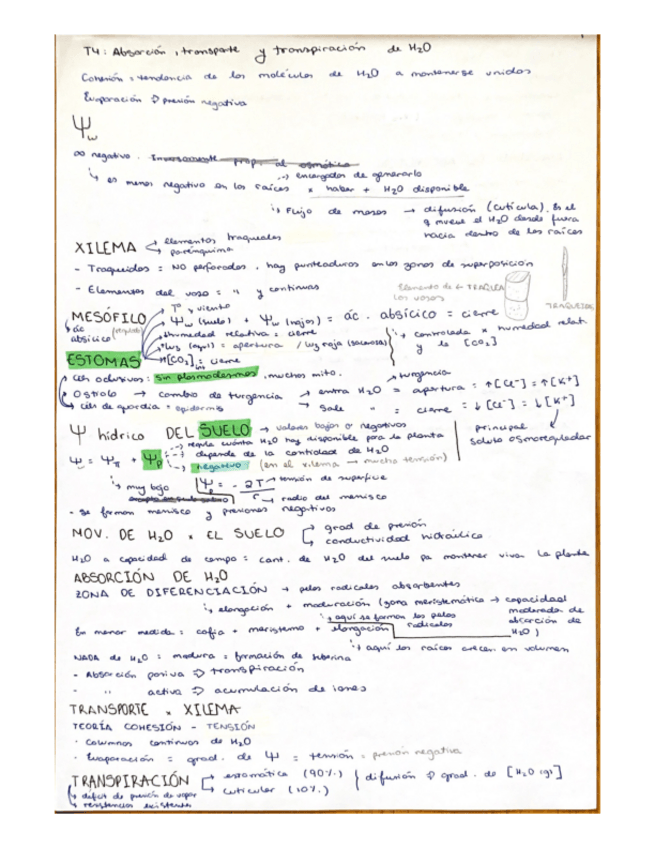 T4: Absorción, transporte y transpiración de H₂O
Cohesión = tendencia de las moléculas de H₂O a mantenerse unidas
Evaporación ⇒ presión negativa
Ψw
∞ negativo. Inversamente prop. al osmótico
↳ encargados de generarlo
↳ es menos negativo en las raíces × haber + H₂O disponible
↳ Flujo de masas → difusión (cutícula). Es el
q mueve el H₂O desde fuera
hacia dentro de las raíces
XILEMA elementos traqueales
parénquima
- Traqueidas = NO perforadas, hay punteaduras en las zonas de superposición
- Elementos del vaso = " y continuas
Elemento de ← TRAQUEA
los vasos
TRAQUEIDA
MESÓFILO
Tº y viento
Ψw (suelo) + Ψw (hojas) = ác. absícico = cierre
↳ ác
absícico (regulado)
Humedad relativa = cierre
Luz (azul) = apertura / luz roja
controlada × humedad relat.
y la [CO₂]
ESTOMAS
[CO₂] int = cierre
Cél oclusivas: sin plasmodesmos, muchas mito.
turgencia
Ostiolo → cambio de turgencia → entra H₂O = apertura = ↑[Cl⁻] = ↑[K⁺]
→ cél de guardia = epidermis → sale " = cierre = ↓[Cl⁻] = ↓[K⁺]
Ψ hídrico DEL SUELO → valores bajos o negativos
principal
soluto osmoregulador
→ regula cuánta H₂O hay disponible para la planta
Ψ = Ψπ + Ψp → depende de la cantidad de H₂O
→ negativo (en el xilema → mucha tensión)
↳ muy bajo Ψp = - 2T → tensión de superficie
r → radio del menisco
- se forman menisco y presiones negativas
MOV. DE H₂O × EL SUELO → grad de presión
→ conductividad hidráulica
H₂O a capacidad de campo = cant. de H₂O del suelo pa mantener viva la planta
ABSORCIÓN DE H₂O
ZONA DE DIFERENCIACIÓN → pelos radicales absorbentes
↳ elongación + maduración (zona meristemática → capacidad
moderada de
absorción de
H₂O)
↳ aquí se forman los pelos
radicales
En menor medida: cofia + meristemo + elongación
↳ aquí las raíces crecen en volumen
NADA de H₂O = madura = formación de suberina
- Absorción pasiva ⇒ transpiración
- " activa ⇒ acumulación de iones
TRANSPORTE × XILEMA
TEORÍA COHESIÓN - TENSIÓN
· Columnas continuas de H₂O
· Evaporación = grad. de Ψ = tensión = presión negativa
TRANSPIRACIÓN → estomática (90%)
→ cuticular (10%)
difusión ⇒ grad. de [H₂O (g)]
↳ déficit de presión de vapor
↳ resistencias existentes